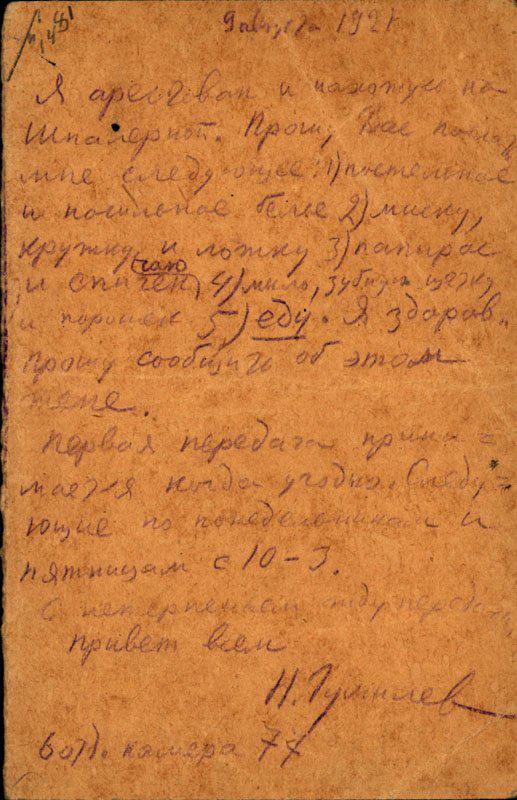 9 августа 1921
Я арестован и нахожусь на
Шпалерной. Прошу Вас послать
мне следующее: 1) постельное
и носильное белье 2) миску,
кружку и ложку 3) папирос
и спичек, чаю 4) мыло, зубную щетку
и порошек 5) еду. Я здоров.
прошу сообщить об этом
жене.
Первая передача прини=
мается когда угодно. Следу=
ющие по понедельникам и
пятницам с 10–3.
С нетерпением жду передачи
привет всем
Н. Гумилев
6 отд. камера 77